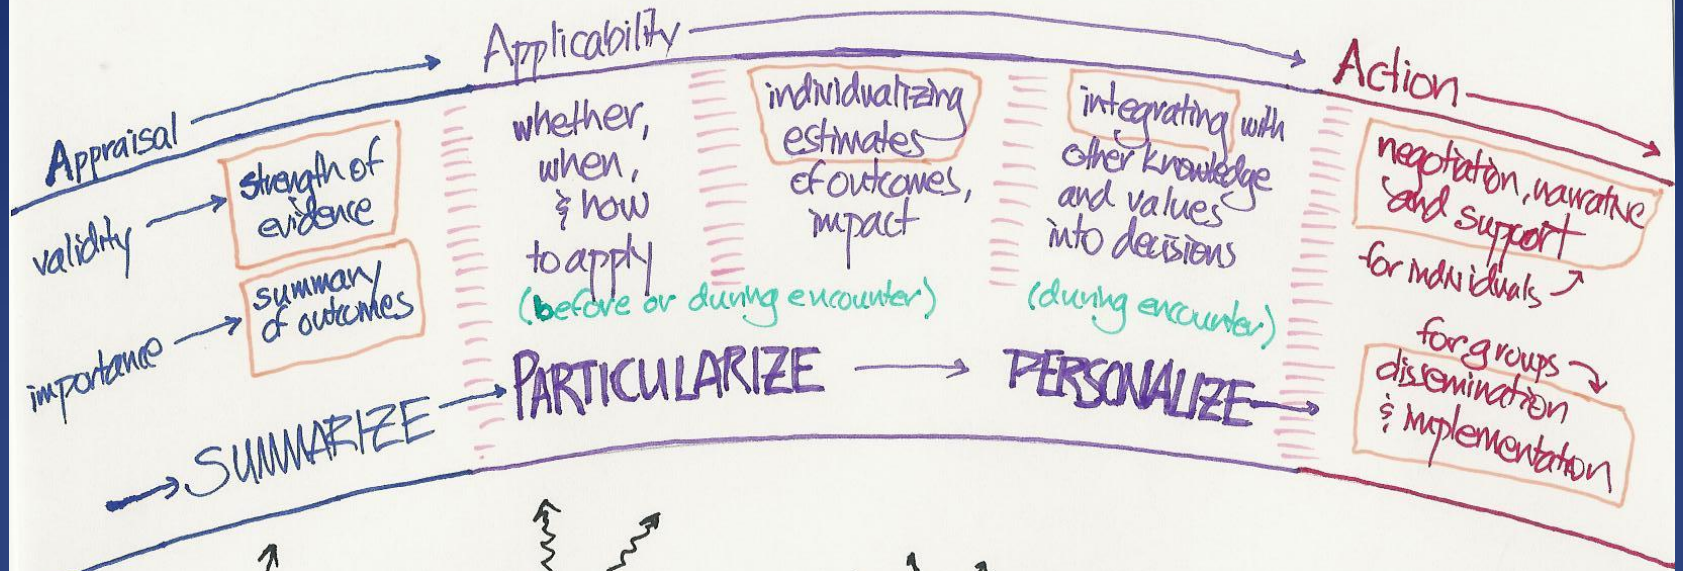 Appraisal
validity
strength of
evidence
importance
summary
of outcomes
SUMMARIZE
Applicability
whether,
when,
& how
to apply
individualizing
estimates
of outcomes,
impact
(before or during encounter)
PARTICULARIZE
integrating with
other knowledge
and values
into decisions
(during encounter)
PERSONALIZE
Action
negotiation, narrative
and support
for individuals
for groups
dissemination
& implementation